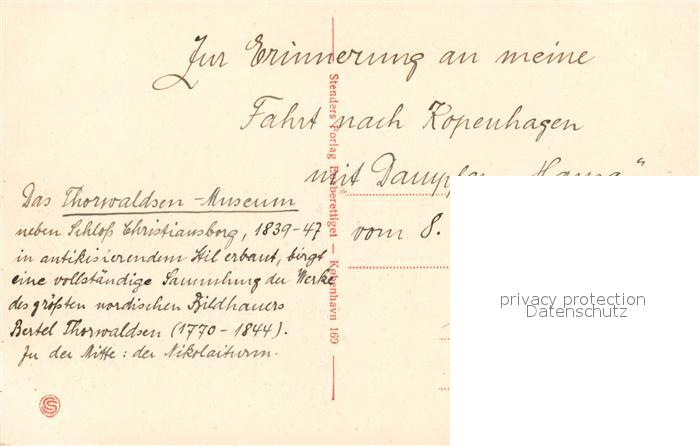 Zur Erinnerung an meine
Fahrt nach Kopenhagen
mit Dampfer
vom 8.
Das Thorwaldsen-Museum
neben Schloß Christiansborg, 1839-47
in antikisierendem Stil erbaut, birgt
eine vollständige Sammlung der Werke
des größten nordischen Bildhauers
Bertel Thorwaldsen (1770-1844).
In der Mitte: der Nikolaiturm.
Stenders Forlag Eneberettiget – København 169
privacy protection
Datenschutz